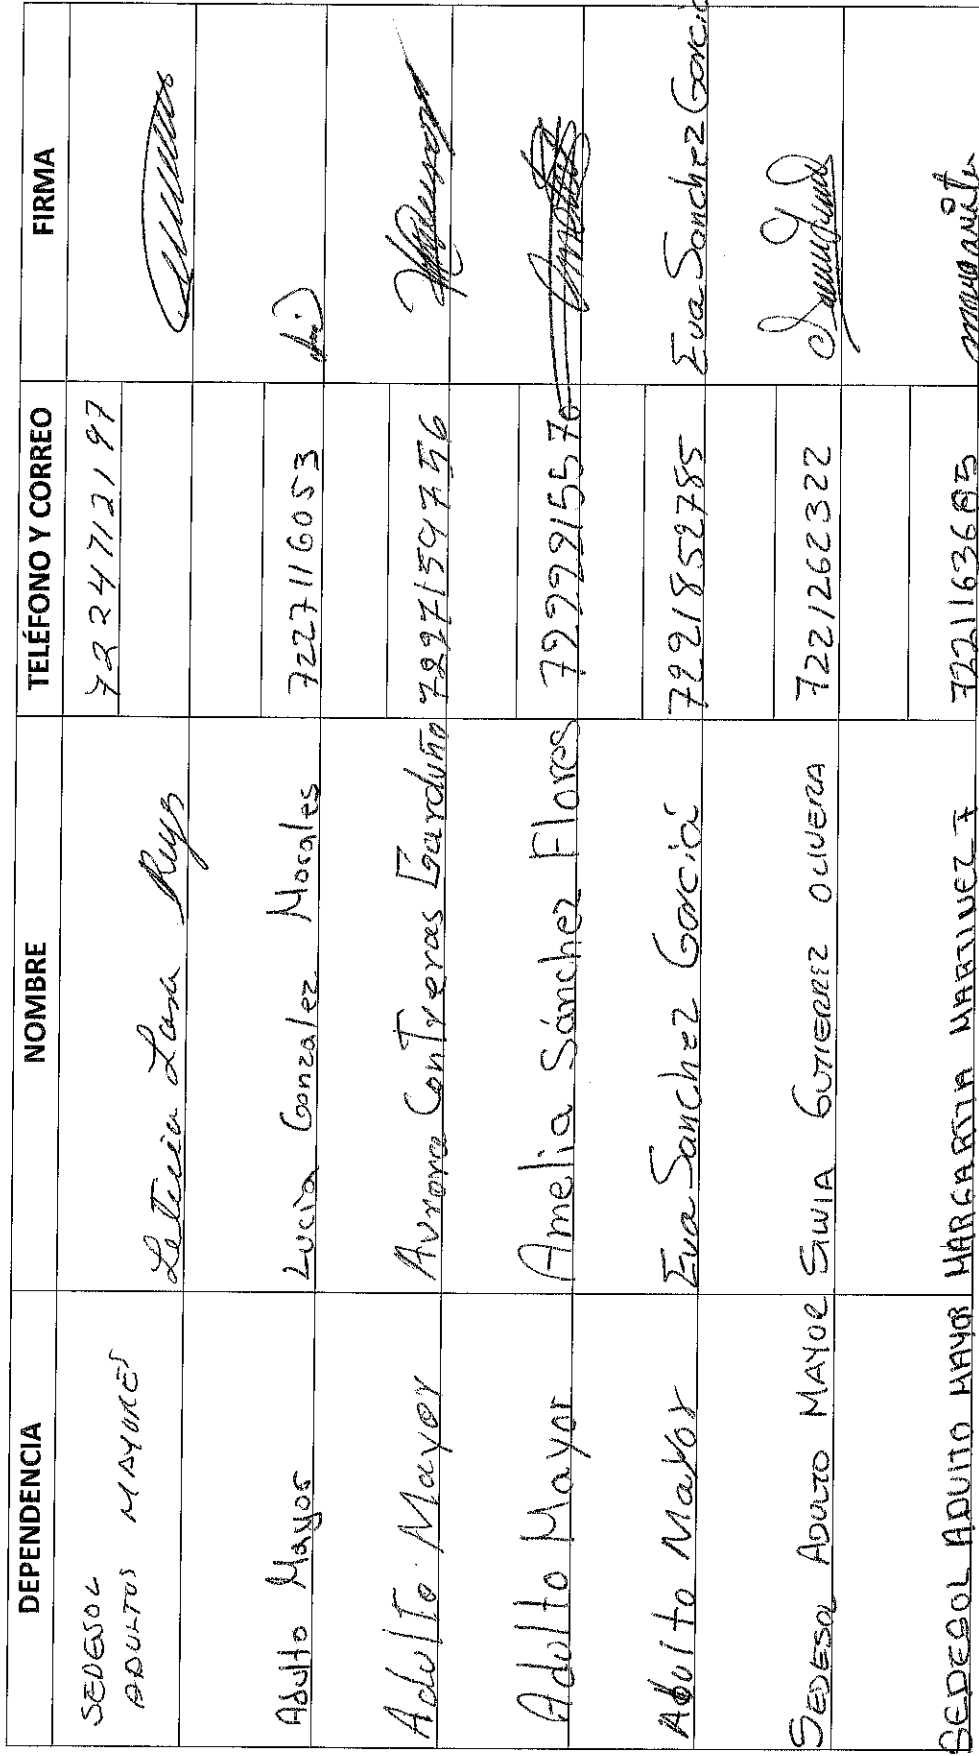 DEPENDENCIA NOMBRE TELÉFONO Y CORREO FIRMA
SEDESOL
ADULTOS MAYORES Leticia Lara 7224712197
Adulto Mayor Lucia Gonzalez Morales 7227116053
Adulto Mayor Aurora Contreras Garduño 7297159756
Adulto Mayor Amelia Sánchez Flores 7299915570
Adulto Mayor Eva Sanchez Garcia 7291852785 Eva Sanchez Garcia
SEDESOL ADULTO MAYOR SILVIA GUTIERREZ OLIVERA 7221262322
SEDESOL ADULTO MAYOR MARGARITA MARTINEZ